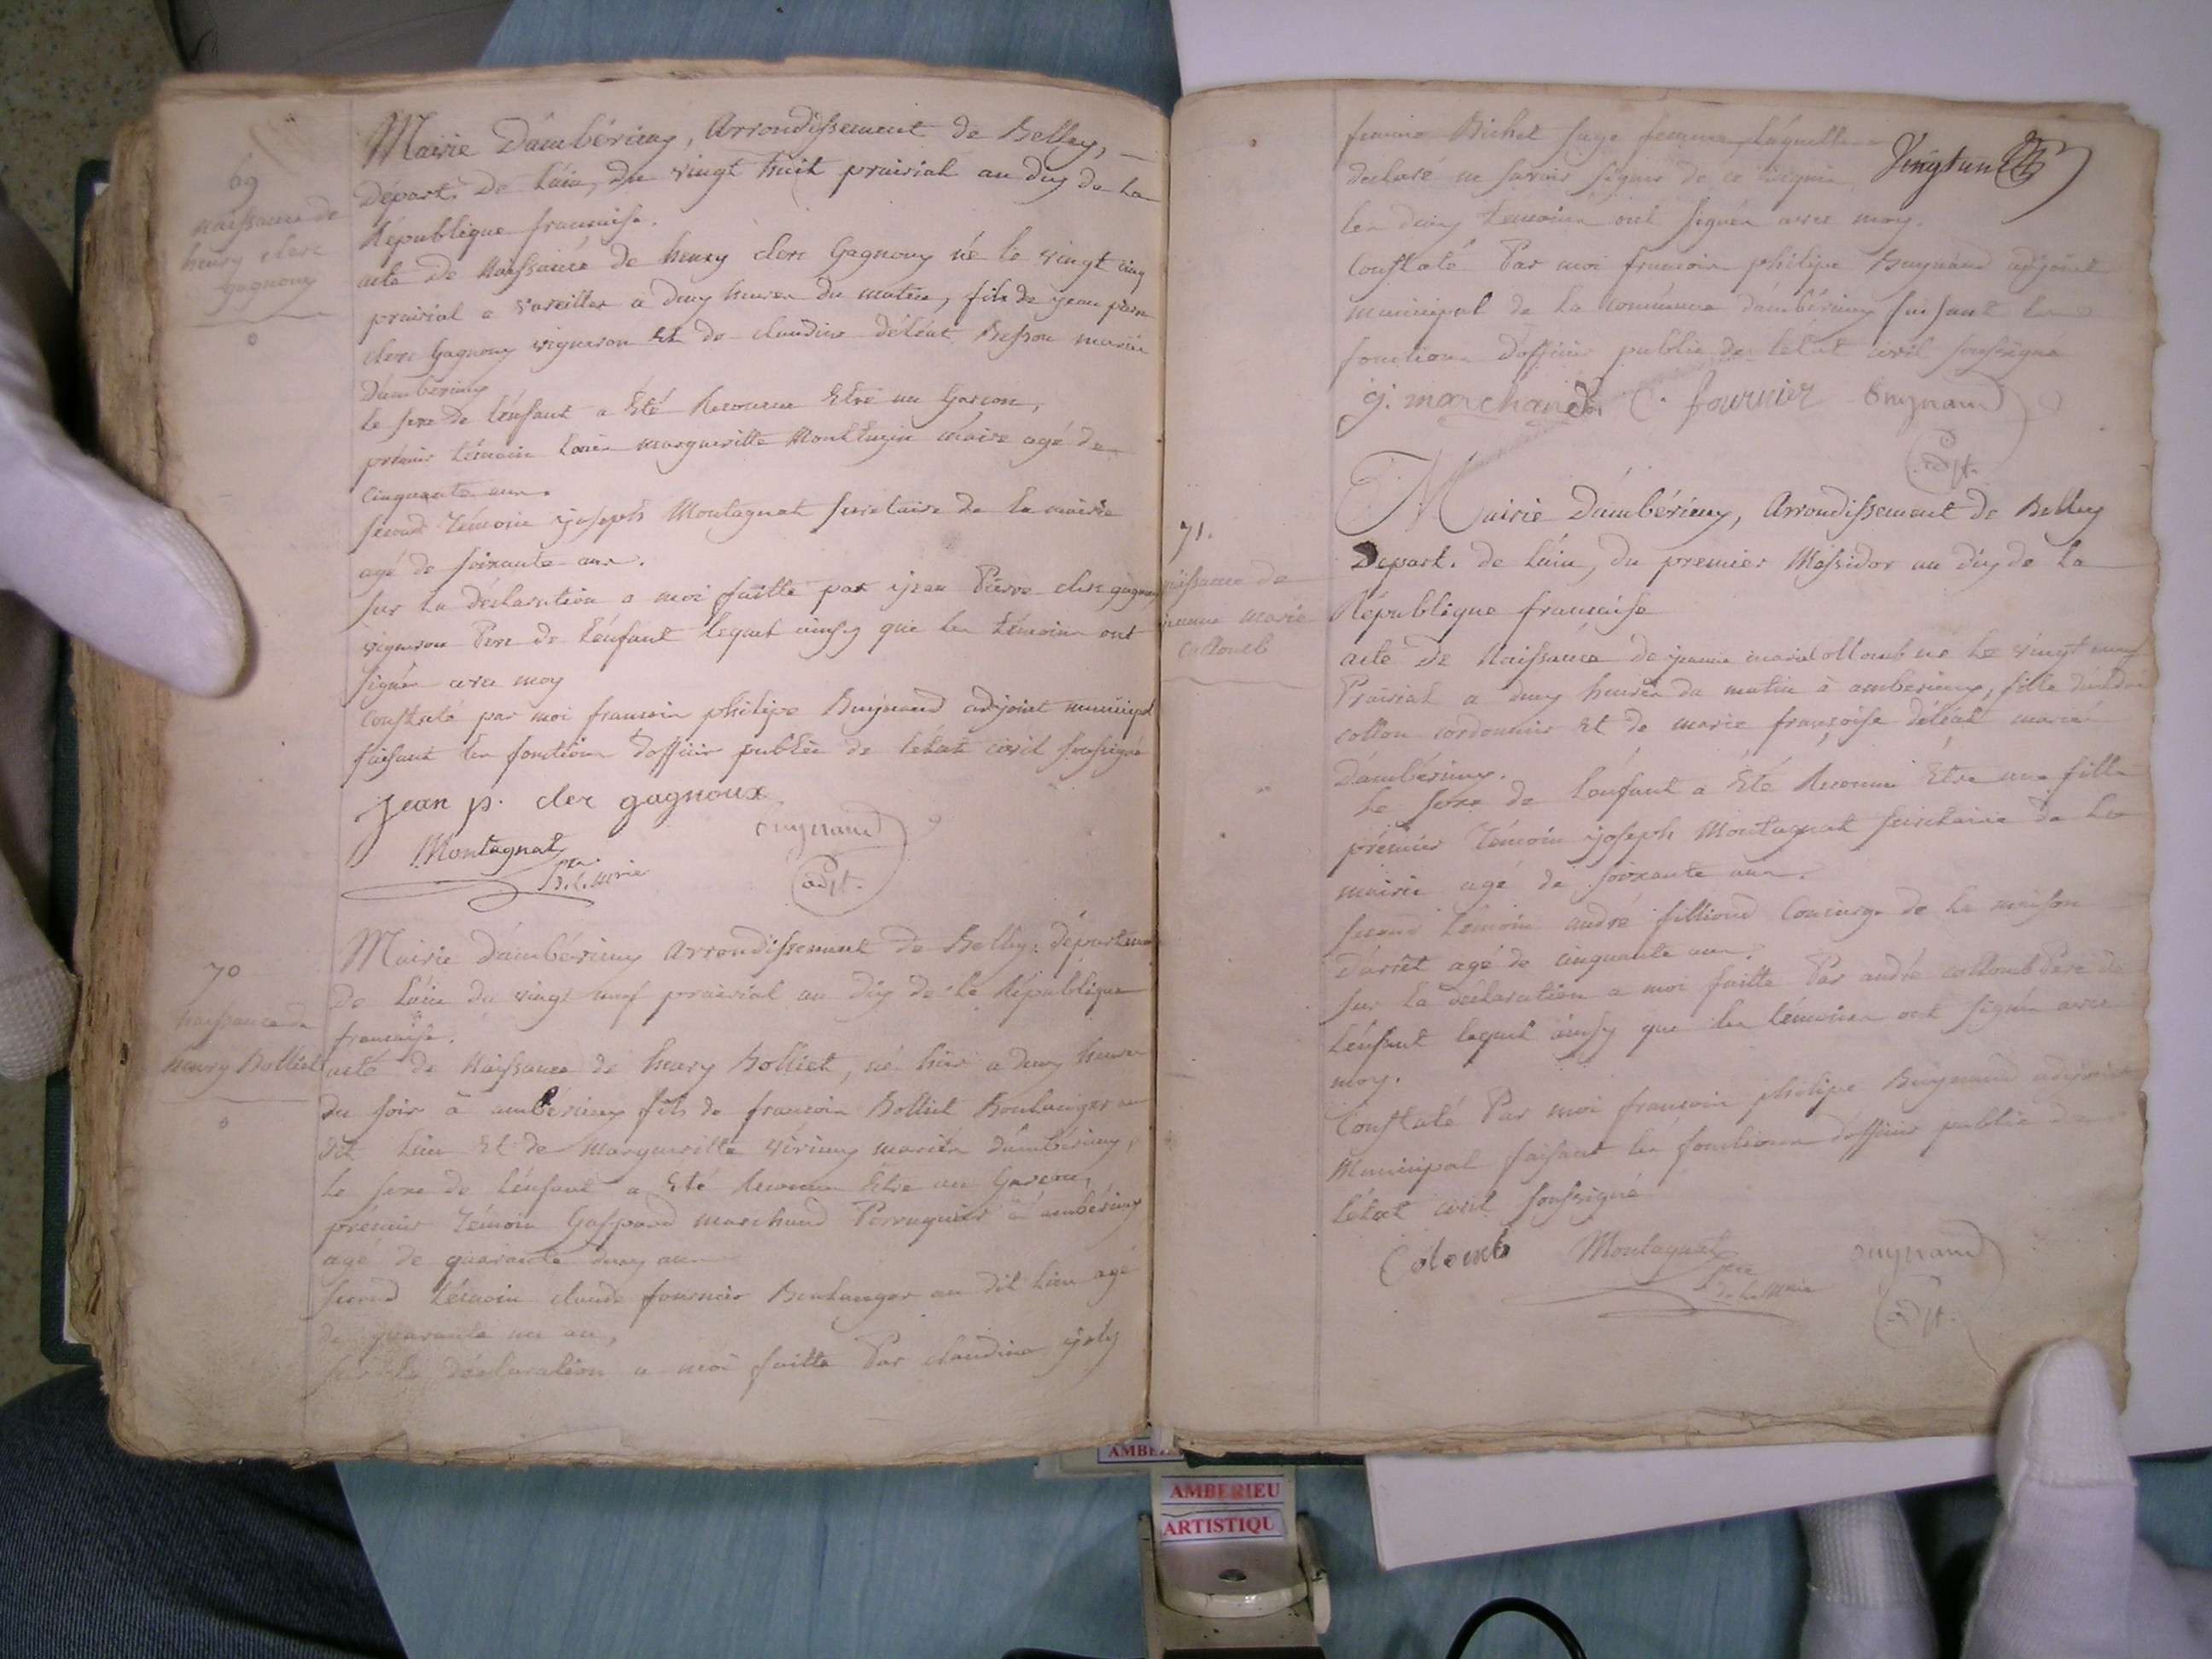 69
naissance de
henry clerc
gagnoux
Mairie D'ambérieuy, Arrondissement de Belley,
Depart. De L'ain, du vingt huit prairial an dix de la
République francaise.
acte De Naissance de henry clerc Gagnoux né le vingt cinq
prairial a vareilles a deuy heures du matin, fils de jean pierre
clerc Gagnoux vigneron Et de claudine déléat Besson mariés
D'ambérieuy
le sexe de l'énfant a Eté Reconnu Etre un Garcon,
prémier témoin Louis margueritte Montluzin maire agé de
Cinquante ans.
second témoin joseph Montagnat secretaire de la mairie
agé de soixante ans.
sur la déclaration a moi faitte par jean Pierre clerc gagnoux
vigneron Pere de L'énfant lequel ainsy que les témoins ont
signés avec moy
constaté par moi francois philipe Bugnand adjoint municipal
faisant les fonctions d'officier public de l'état civil soussigné
jean p. cler gagnoux
Montagnat
sre.
D. L. Mrie
Bugnand
adjt.
70
naissance de
henry Bolliet
Mairie d'ambérieuy Arrondissement de Belley. départem
De L'ain du vingt neuf prairial an dix de la République
francaise.
acte de Naissance de henry Bolliet, né hier a deuy heures
du soir à ambérieuy fils de francois Bolliet Boulanger au
dit Lieu Et de Margueritte vérieuy mariés d'ambérieuy,
le sexe de L'énfant a Eté Reconnu Etre un Garcon,
prémier témoin Gaspard marchand Perruquier à ambérieuy
agé de quarante deuy ans
second témoin claude fournier Boulanger au dit Lieu agé
de quarante un an,
sur la déclaration a moi faitte Par claudine joly
femme Bichet sage femme, laquelle a
Vingt un
declaré ne savoir signer de ce enquise
les deuy témoins ont signés avec moy.
Constaté Par moi francois philipe Bugnand adjoint
municipal de la commune d'ambérieuy faisant les
fonctions D'officier public de L'état civil soussigné
g. marchand C. fournier Bugnand
adjt.
71.
naissance de
jeanne marie
collomb
Mairie D'ambérieuy, Arrondissement de Belley
Depart. de L'ain, du premier Messidor an dix de la
République francaise
acte De Naissance de jeanne marie collomb né Le vingt neuf
Prairial a deuy heures du matin à ambérieuy, fille d'andré
collon cordonnier Et de marie françoise déléat mariés
D'ambérieuy.
Le sexe de L'énfant a Eté Reconnu Etre une fille
prémier témoin joseph Montagnat secretaire de La
mairie agé de soixante ans.
second témoin andré filliond Concierge de la maison
d'arrêt agé de cinquante ans.
sur la déclaration a moi faitte Par andré collomb Pere de
L'énfant lequel ainsy que les témoins ont signés avec
moy.
Constaté Par moi francois philipe Bugnand adjoint
Municipal faisant les fonctions d'officier public de
L'état civil soussigné
Colomb Montagnat Bugnand
sre
de la Mrie
adjt.
AMBERIEU
ARTISTIQU